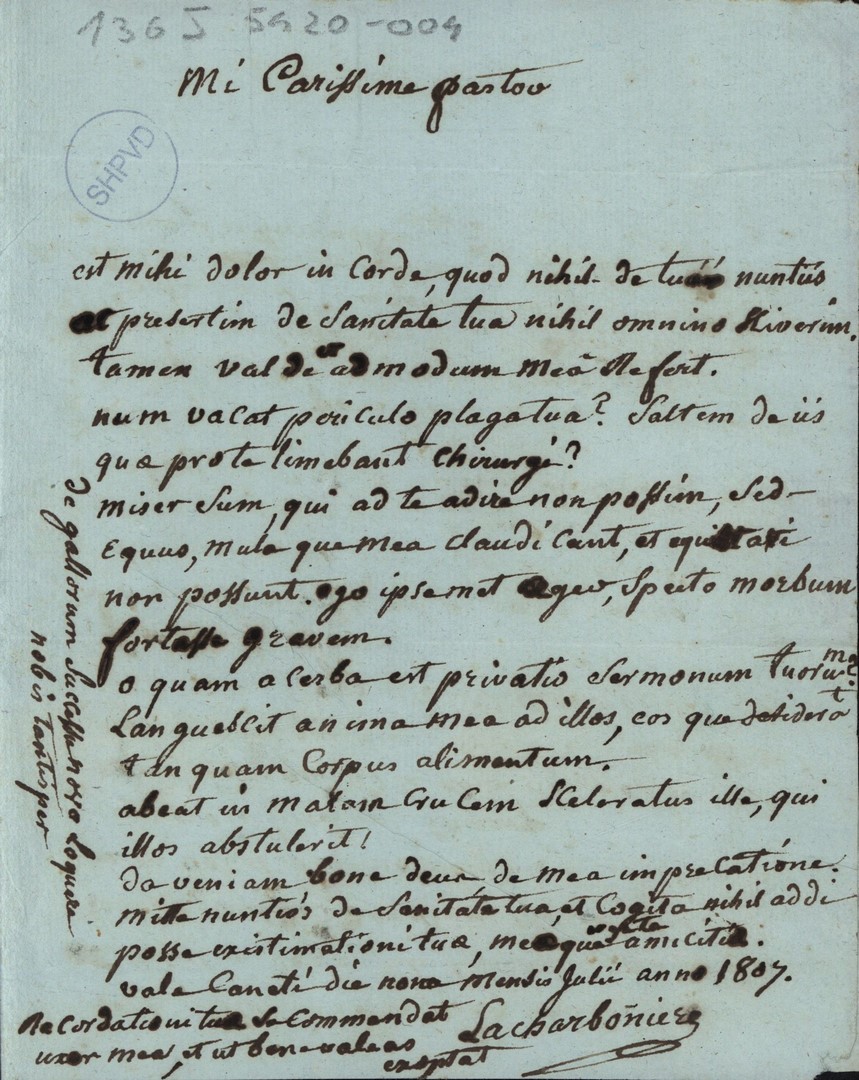 136 J 5920-004
Mi Carissime pastor
SHPVD
est mihi dolor in Corde, quod nihil de tuis nuntiis
ac presertim de Sanitate tua nihil omnino Sciverim.
tamen valde et admodum meâ Refert.
num vacat periculo plaga tua? Saltem de iis
quæ pro te timebant chirurgi?
miser Sum, qui ad te adire non possim, Sed
Equus, mula que mea claudicant, et equitari
non possunt. ego ipsemet æger, Specto morbum
fortasse gravem.
o quam acerba est privatio Sermonum tuorum
Languescit anima mea ad illos, eos que desiderat
tanquam Corpus alimentum.
abeat in malam Crucem Sceleratus ille, qui
illos abstulerit!
da veniam bone deus de mea imprecatióne.
mitte nuntiós de Sanitáte tua, et Cogita nihil addi
posse existimationi tuæ, meæque amicitiæ.
vale Caneti die nona mensis Julii anno 1807.
Lacharboñiere
Recordationi tuæ se Commendat
uxor mea, et ut bene valeas
exoptat
de gallorum Successu novo Loquere
nobis tantisper